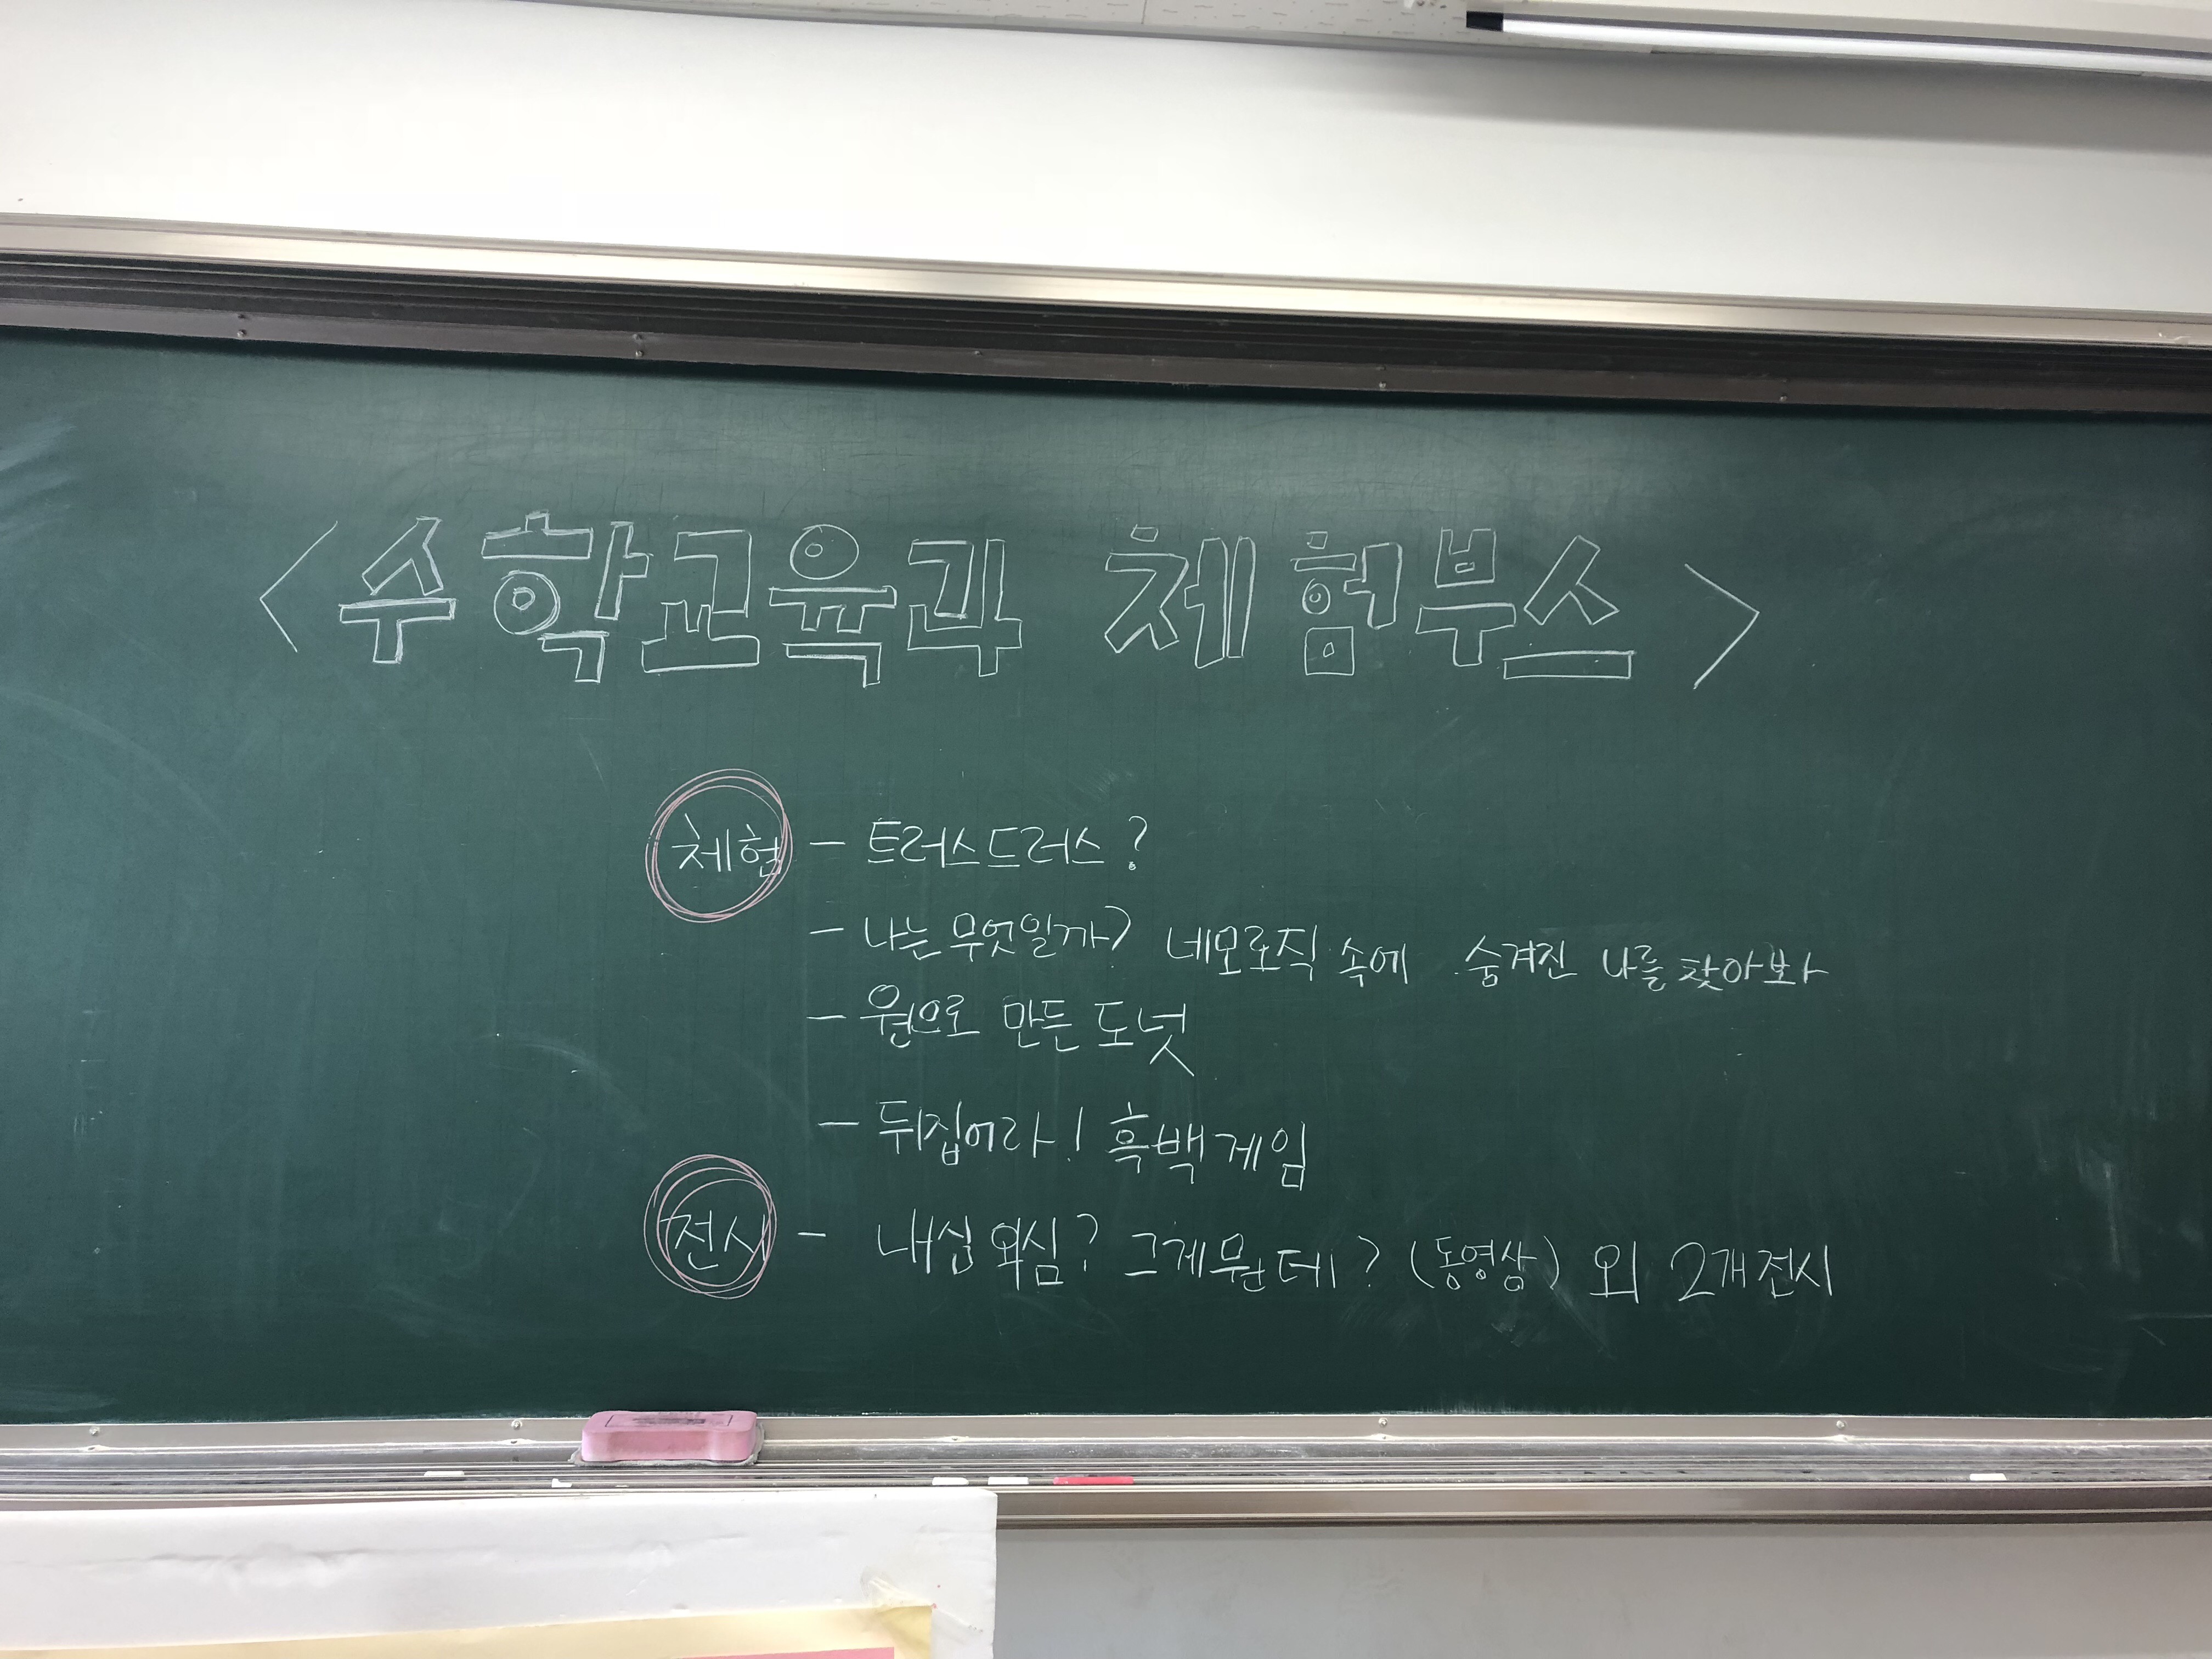 <수학교육과 체험부스>
체험 - 트러스트러스?
- 나는 무엇일까? 네모로직 속에 숨겨진 나를 찾아봐
- 원으로 만든 도넛
- 뒤집어라! 흑백게임
전시 - 내심 외심? 그게뭔데? (동영상) 외 2개 전시